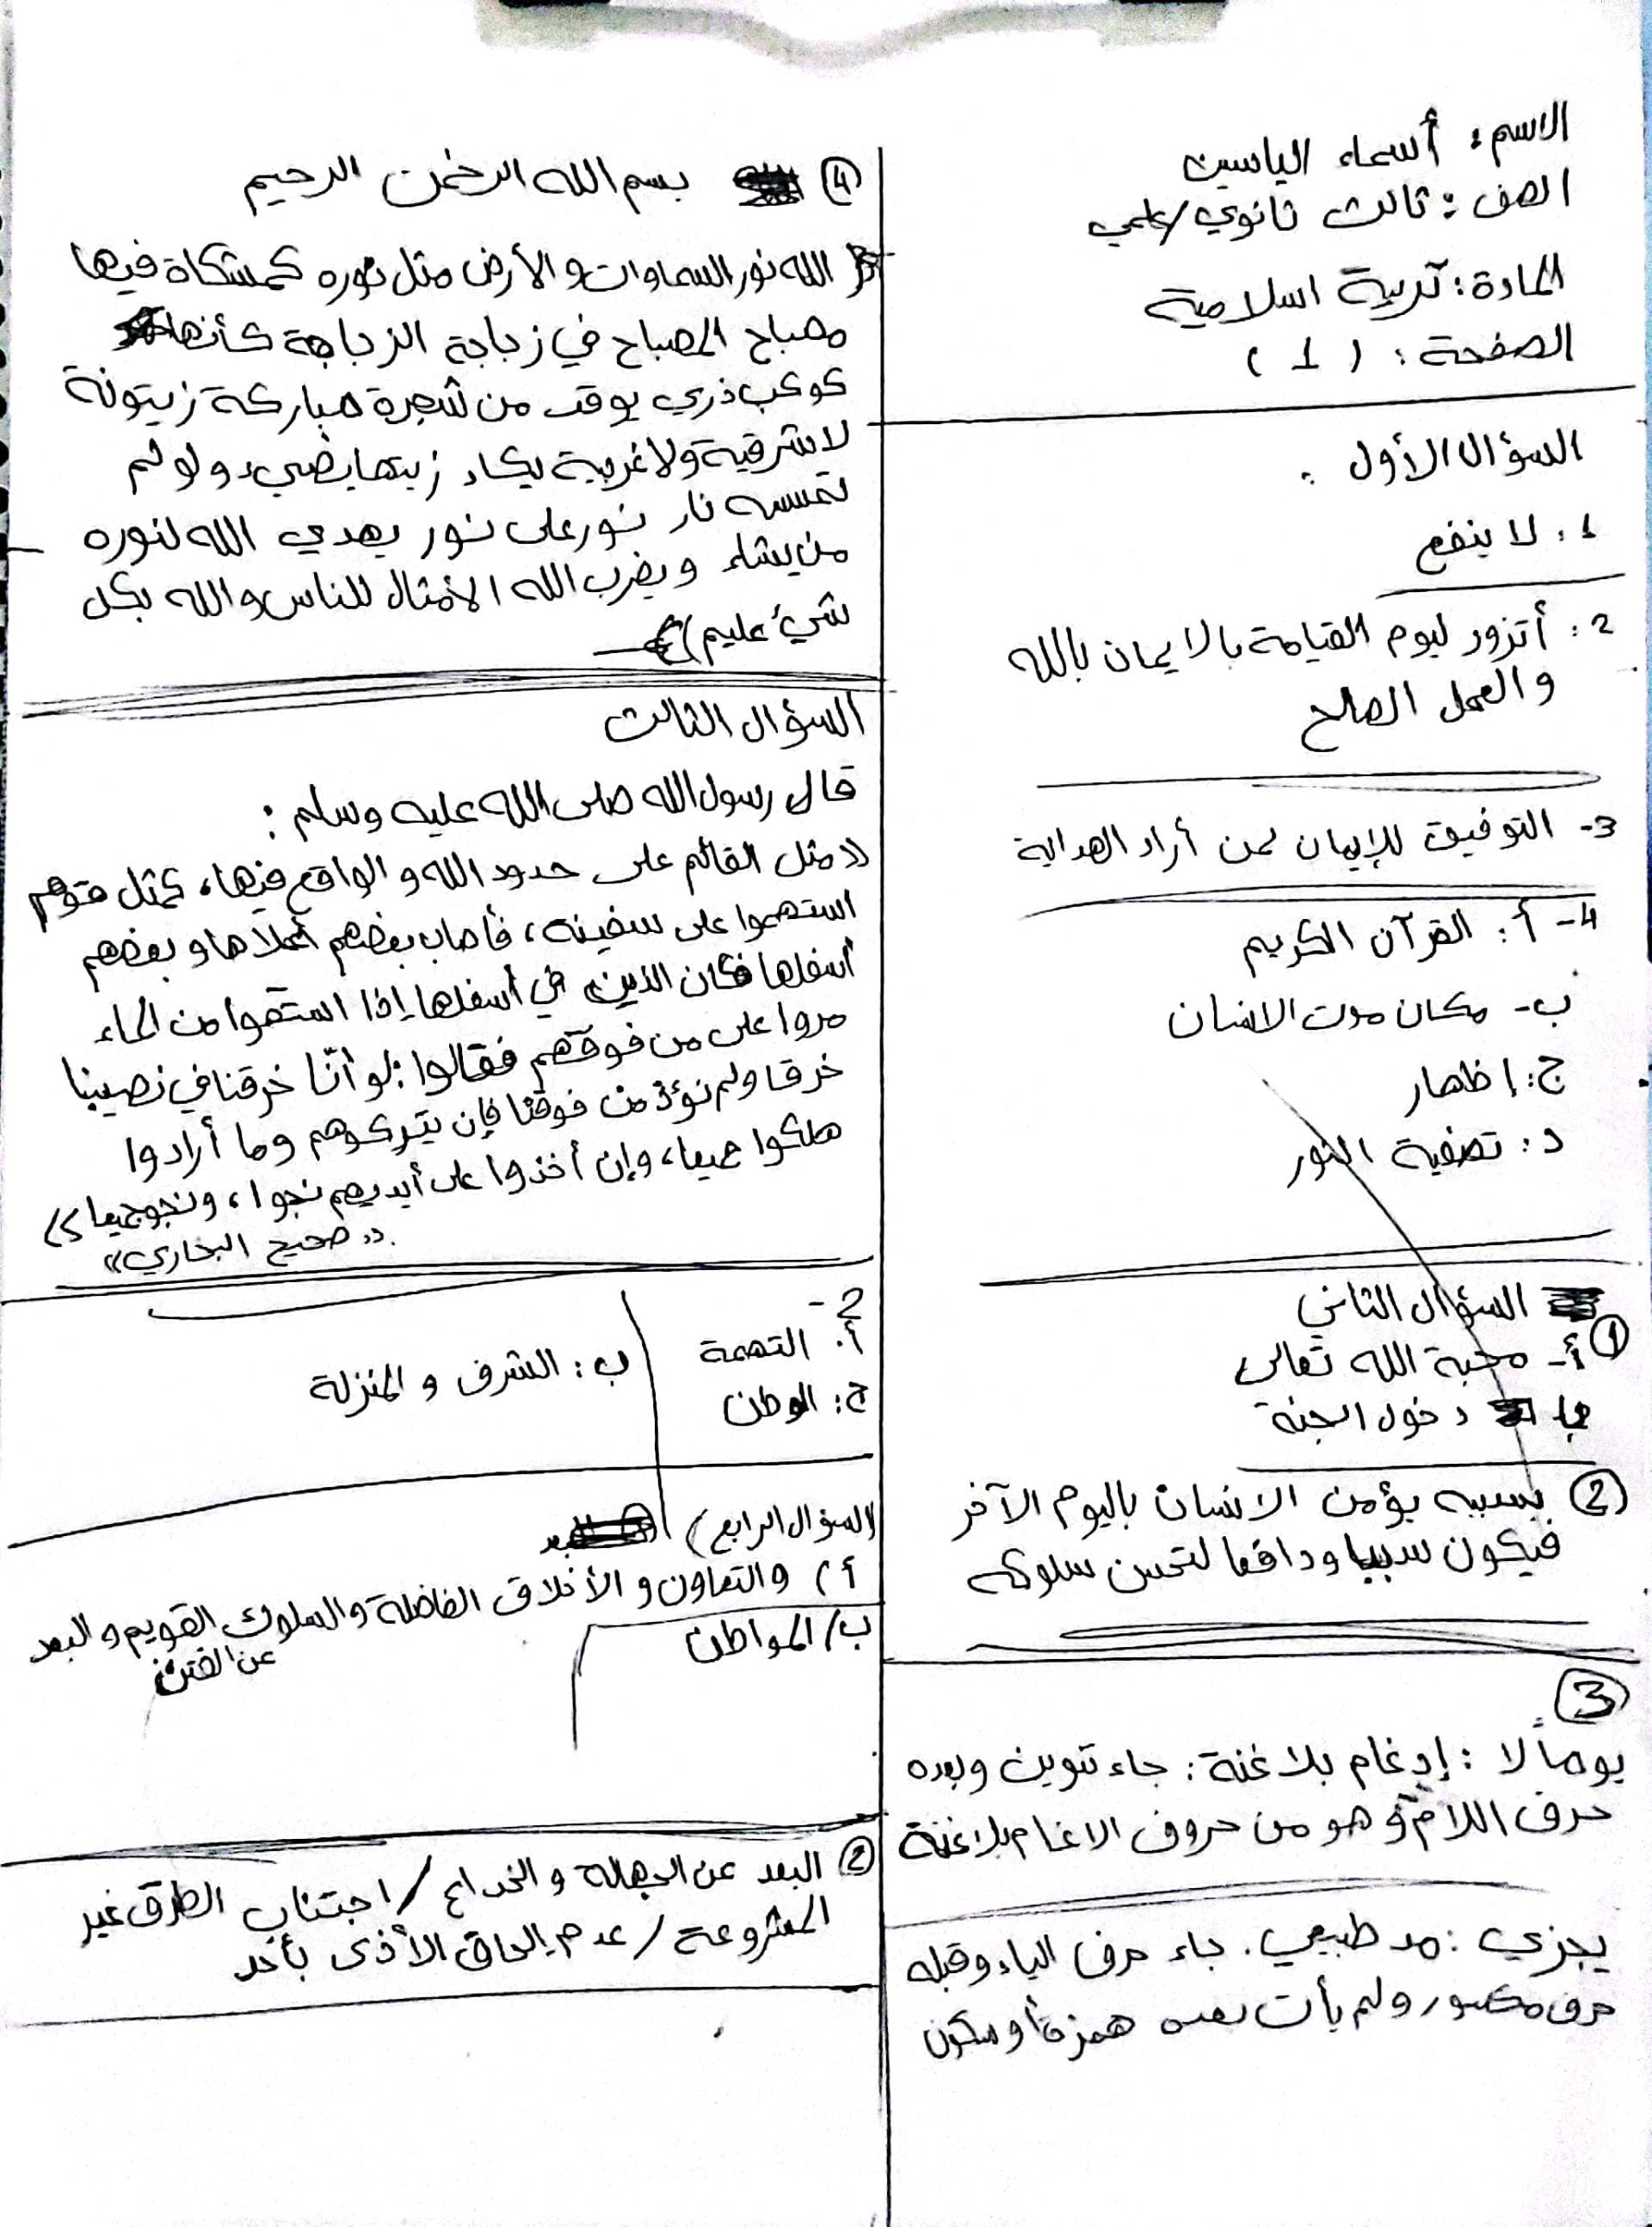 الاسم : أسماء الياسين
الصف : ثالث ثانوي/علمي
المادة : تربية اسلامية
الصفحة : ( 1 )
السؤال الأول :
1 : لا ينفع
2 : أتزود ليوم القيامة بالايمان بالله
والعمل الصالح
3- التوفيق للإيمان لمن أراد الهداية
4- أ : القرآن الكريم
ب - مكان موت الانسان
ج : إظهار
د : تصفية النور
السؤال الثاني
① أ- محبة الله تعالى
دخول الجنة
② بسببه يؤمن الانسان باليوم الآخر
فيكون سببا ودافعا لتحسن سلوكه
③
يوماً لا : إدغام بلا غنة : جاء تنوين وبعده
حرف اللام و هو من حروف الادغام بلا غنة
يجزي : مد طبيعي . جاء حرف الياء وقبله
حرف مكسور ولم يأت بعده همزة أو سكون
④ بسم الله الرحمن الرحيم
الله نور السماوات و الأرض مثل نوره كمشكاة فيها
مصباح المصباح في زجاجة الزجاجة كأنها
كوكب ذري يوقد من شجرة مباركة زيتونة
لا شرقية ولا غربية يكاد زيتها يضيء ولو لم
تمسسه نار نور على نور يهدي الله لنوره
من يشاء ويضرب الله الأمثال للناس والله بكل
شيء عليم
السؤال الثالث
قال رسول الله صلى الله عليه وسلم :
(( مثل القائم على حدود الله و الواقع فيها، كمثل قوم
استهموا على سفينه، فأصاب بعضهم أعلاها و بعضهم
أسفلها فكان الذين في أسفلها إذا استقوا من الماء
مروا على من فوقهم فقالوا : لو أنّا خرقنا في نصيبنا
خرقا ولم نؤذ من فوقنا فإن يتركوهم وما أرادوا
هلكوا جميعا، وإن أخذوا على أيديهم نجوا، ونجو جميعا ))
(( صحيح البخاري ))
2-
أ. التهمة
ب : الشرف و المنزلة
ج : الوطن
(السؤال الرابع)
أ ) والتعاون و الأخلاق الفاضلة والسلوك القويم و البعد
عن الفتن
ب/ المواطن
② البعد عن الجهالة و الخداع / اجتناب الطرق غير
المشروعة / عدم إلحاق الأذى بأحد